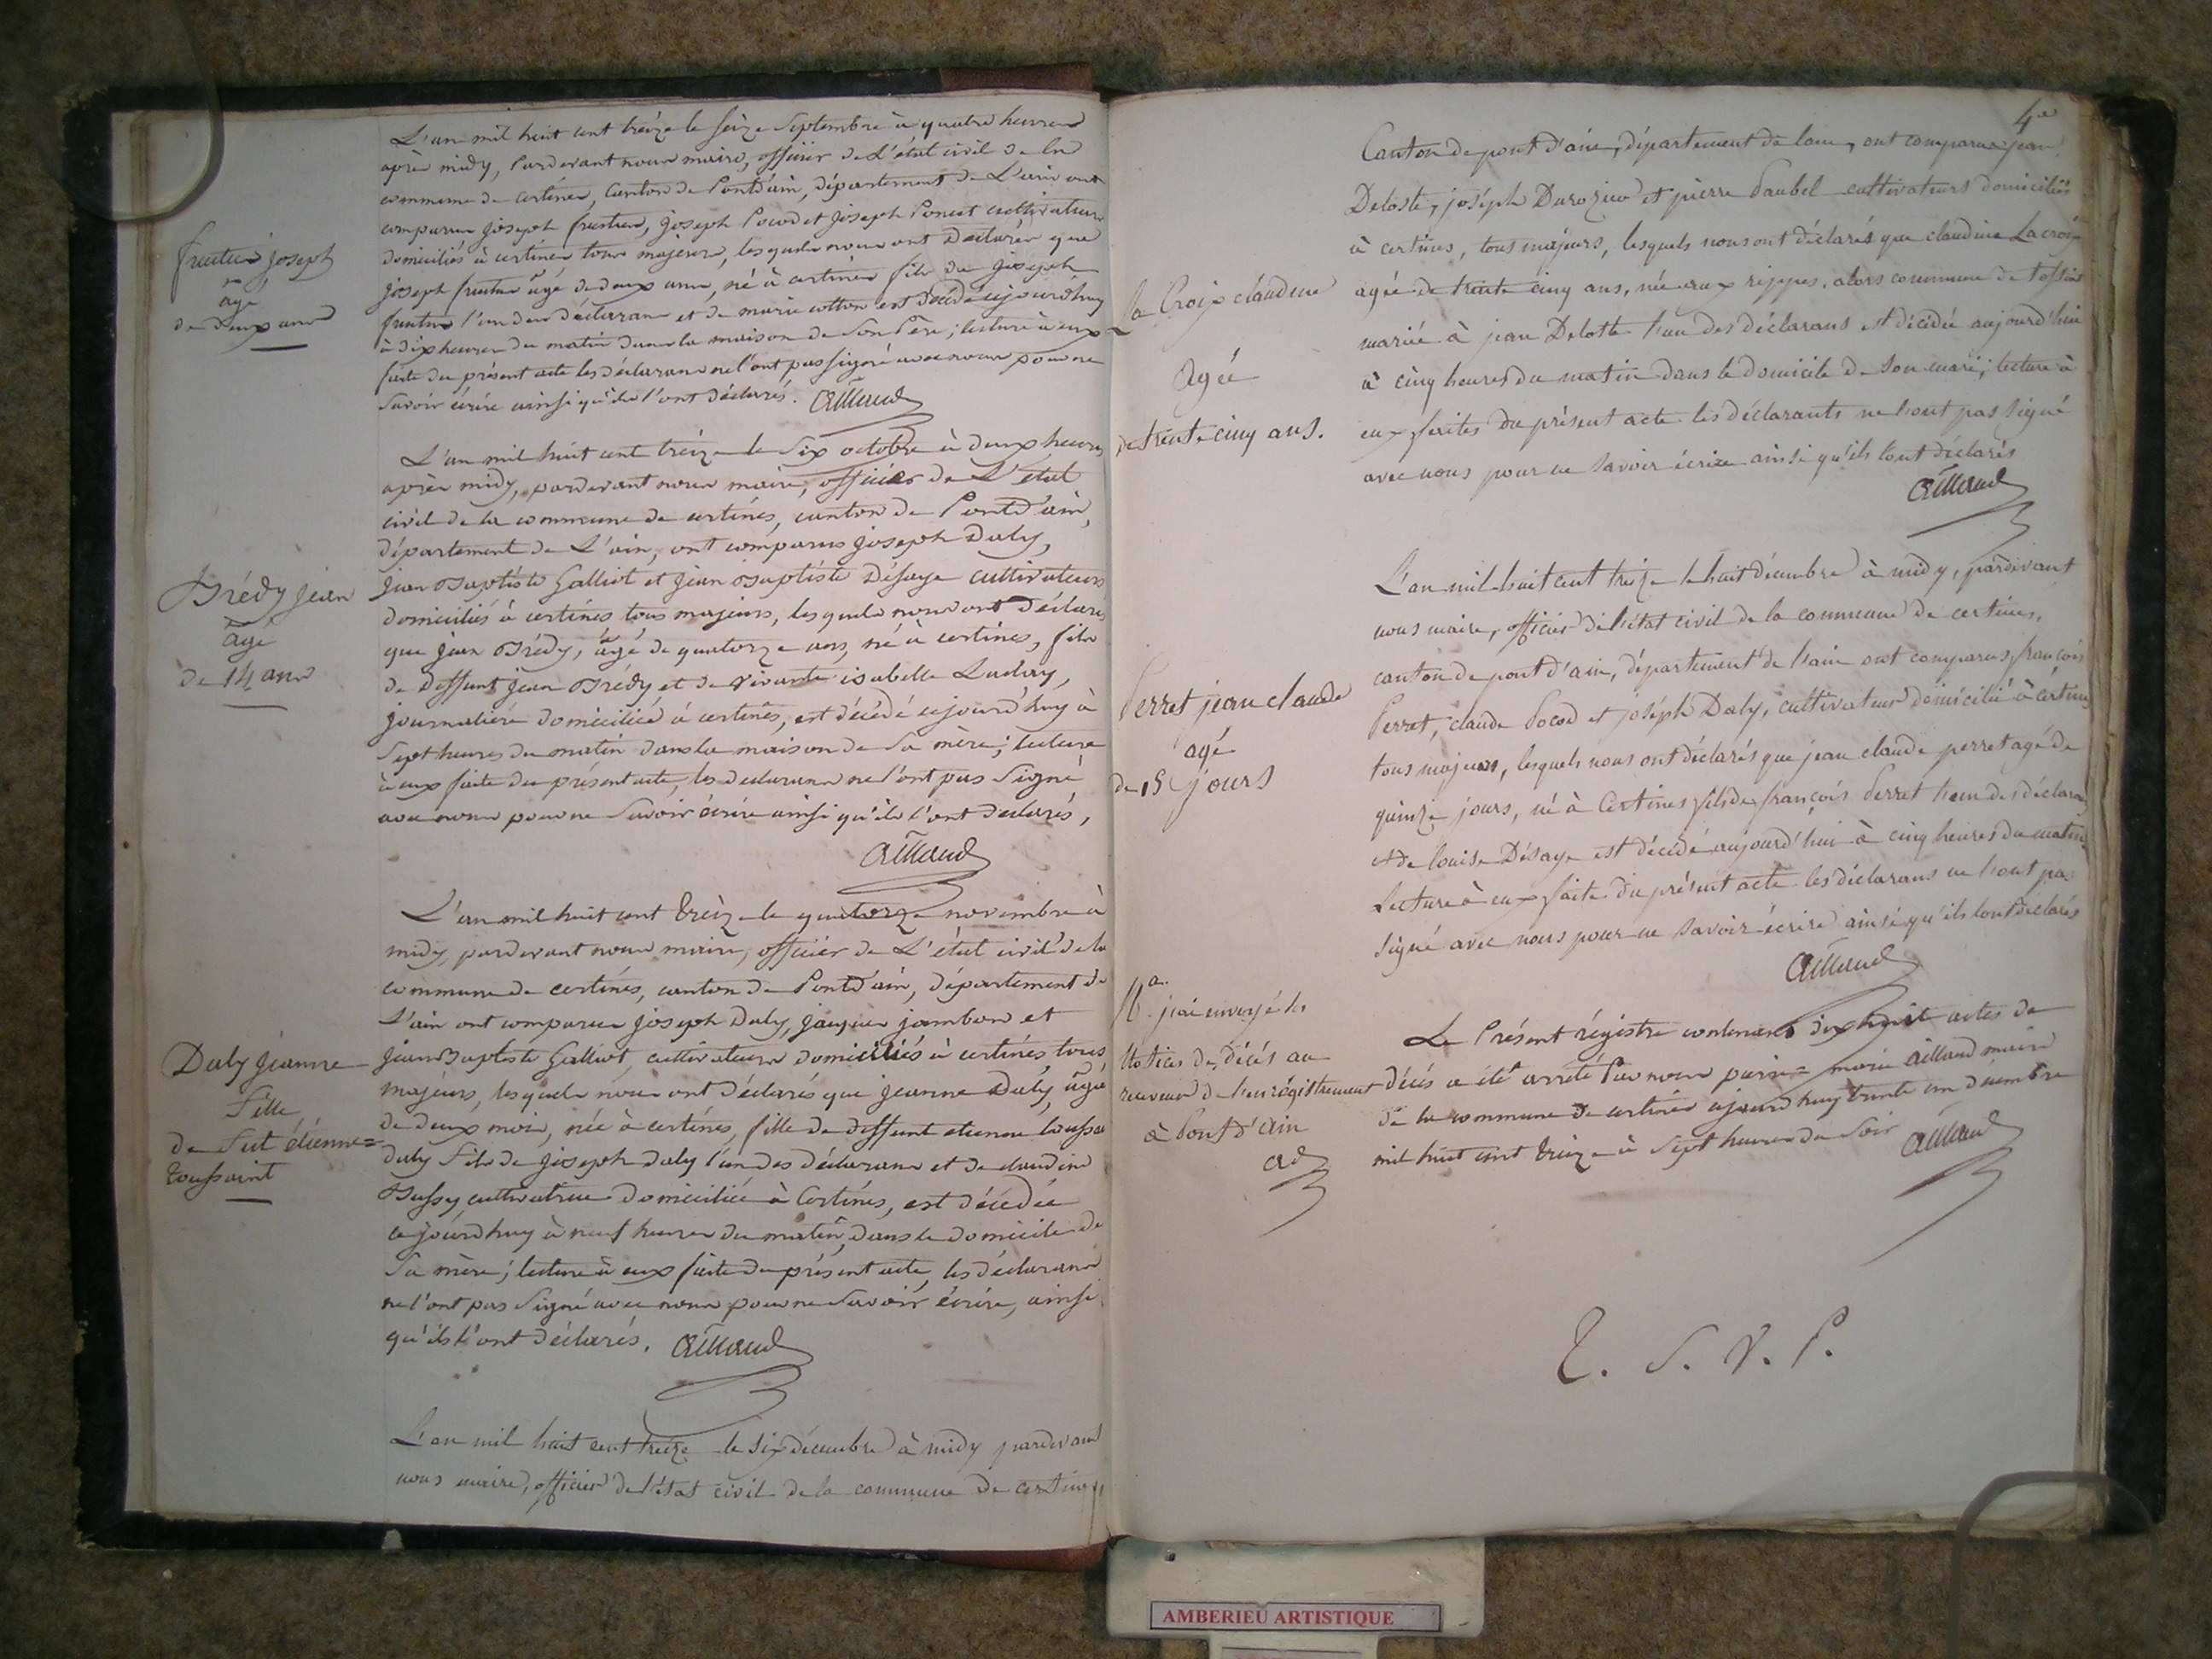 L'an mil huit cent treize le seize Septembre à quatre heures
après midy, Pardevant nous maire, officier de L'état civil de la
commune de certines, Canton de Pontd'ain, département de L'ain ont
comparus joseph fruttier, joseph Pocod et joseph Poncet cultivateurs
domiciliés à certines tous majeurs, lesquels nous ont Déclarés que
joseph age de deux ans, né à certines fils de joseph
l'un des déclarans et de marie est Décédé cejourd'huy
à dix heures du matin dans la maison de Son Père; lecture à eux
faite du présent acte les déclarans ne l'ont pas signé avec nous pour ne
savoir écrire ainsi qu'ils l'ont déclarés.
joseph
agé
de deux ans
L'an mil huit cent treize le Six octobre à deux heures
après midy, pardevant nous maire, officier de L'état
civil de la commune de certines, canton de Pontd'ain,
département de L'ain, ont comparus joseph Daly,
jean Baptiste Galliot et jean Baptiste Désaye cultivateurs
domiciliés à certines tous majeurs, lesquels nous ont déclarés
que jean Brédy, âgé de quatorze ans, né à certines, fils
de deffunt jean Brédy et de vivante isabelle
journalière domiciliée à certines, est décédé cejourd'huy à
Sept heures du matin dans la maison de Sa mère; lecture
à eux faite du présent acte, les declarans ne l'ont pas Signé
avec nous pour ne Savoir écrire ainsi qu'ils l'ont declarés,
Aillaud
Brédy jean
âgé
de 14 ans
L'an mil huit cent treize le quatorze novembre à
midy, pardevant nous maire, officier de L'état civil de la
commune de certines, canton de Pontd'ain, département de
L'ain ont comparus joseph Daly, jacques jambon et
jean Baptiste Galliot, cultivateurs domiciliés à certines tous
majeurs, lesquels nous ont déclarés que jeanne Daly, âgé
de deux mois, née à certines, fille de deffunt etienne
Daly fils de joseph Daly l'un des déclarans et de claudine
Bussy cultivatrice Domiciliée à Certines, est décédée
cejourd'huy à neuf heures du matin, dans le domicile de
Sa mère; lecture à eux faite du présent acte, les déclarans
ne l'ont pas Signé avec nous pour ne Savoir écrire, ainsi
qu'ils l'ont déclarés. Aillaud
Daly jeanne
Fille
de Feut étienne=
toussaint
L'an mil huit cent treize le six décembre à midy pardevant
nous maire, officier de l'état civil de la commune de certines
4e
Canton de pont d'ain, département de lain, ont comparus jean
Deloste, joséph Durozieu et pierre cultivateurs domiciliés
à certines, tous majeurs, lesquels nous ont déclarés que claudine Lacroix
agée de trente cinq ans, née aux rippes, alors commune de tossiat
mariée à jean Deloste l'un des déclarans est décédée aujourd'hui
à cinq heures du matin dans le domicile de son mari; lecture à
eux faites du présent acte les déclarants ne l'ont pas signé
avec nous pour ne savoir écrire ainsi qu'ils l'ont déclarés
Aillaud
la Croix claudine
agée
de trente cinq ans.
L'an mil huit cent treize le huit décembre à midy, pardevant
nous maire, officier de l'état civil de la commune de certines,
canton de pont d'ain, département de l'ain ont comparus, françois
Perret, claude Pocod et joséph Daly, cultivateurs domicilié à certines
tous majeurs, lesquels nous ont déclarés que jean claude perret agé de
quinze jours, né à Certines fils de françois Perret l'un des déclarans
et de louise Désaye est décédé aujourd'hui à cinq heures du matin
Lecture à eux faite du présent acte les déclarans ne l'ont pas
signé avec nous pour ne savoir écrire ainsi qu'ils l'ont déclarés
Aillaud
Perret jean claude
agé
de 15 jours
Le Présent régistre contenant dix huit actes de
décés a été arreté Par nous pierre= marie Aillaud maire
de la commune de certines cejourd'huy trente un décembre
mil huit cent treize à Sept heures du Soir Aillaud
Na. j'ai envoyé les
Notices des décés au
receveur de l'enrégistrement
à Pont d'ain
T. S. V. P.
AMBERIEU ARTISTIQUE